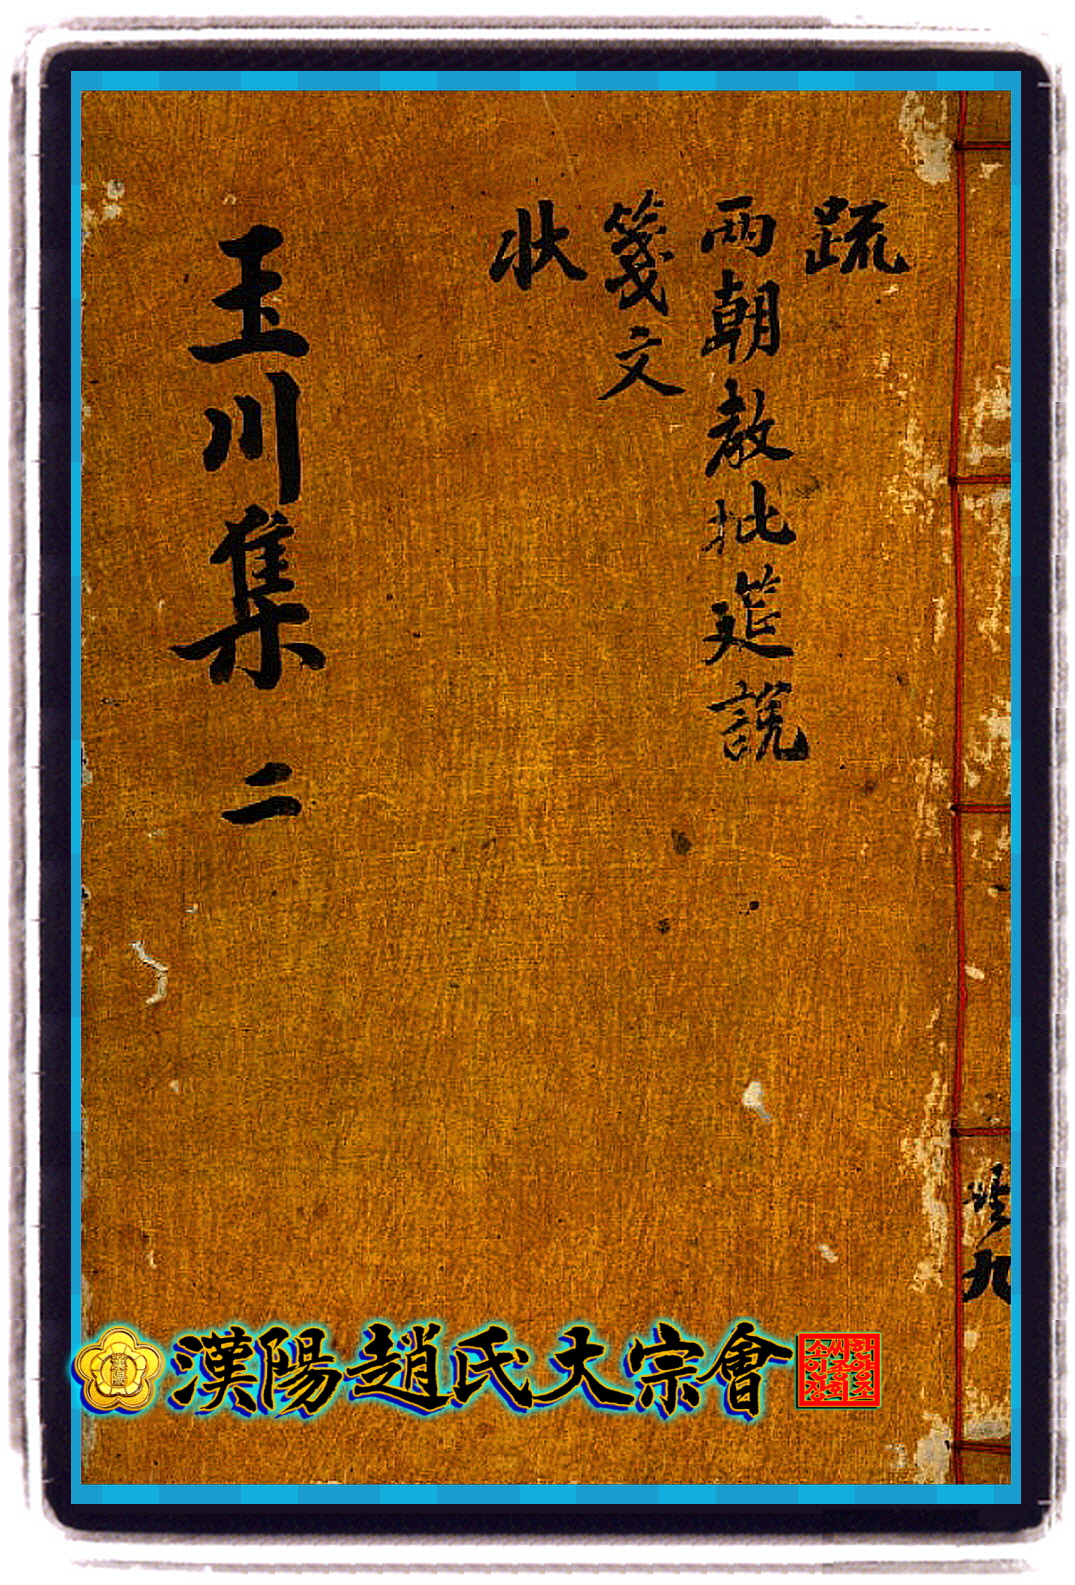 疏
兩朝教批筵說
箋文
狀
玉川集 二
九
漢陽
漢陽趙氏大宗會